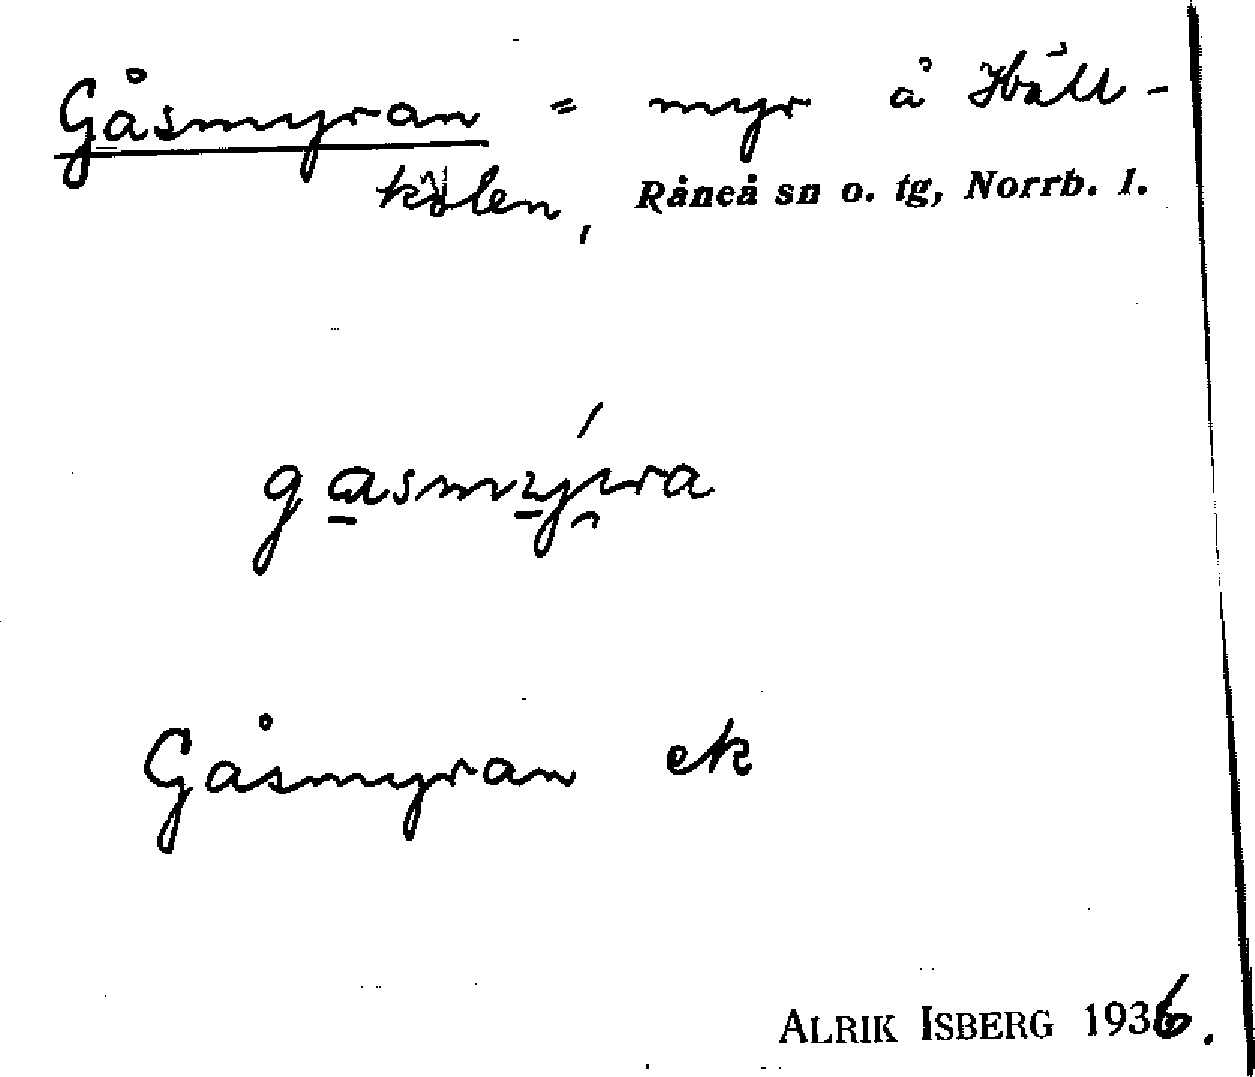 Gåsmyran = myr å Håll-
kölen, Råneå sn o. tg, Norrb. l.
Gåsmyran ek
ALRIK ISBERG 1936.